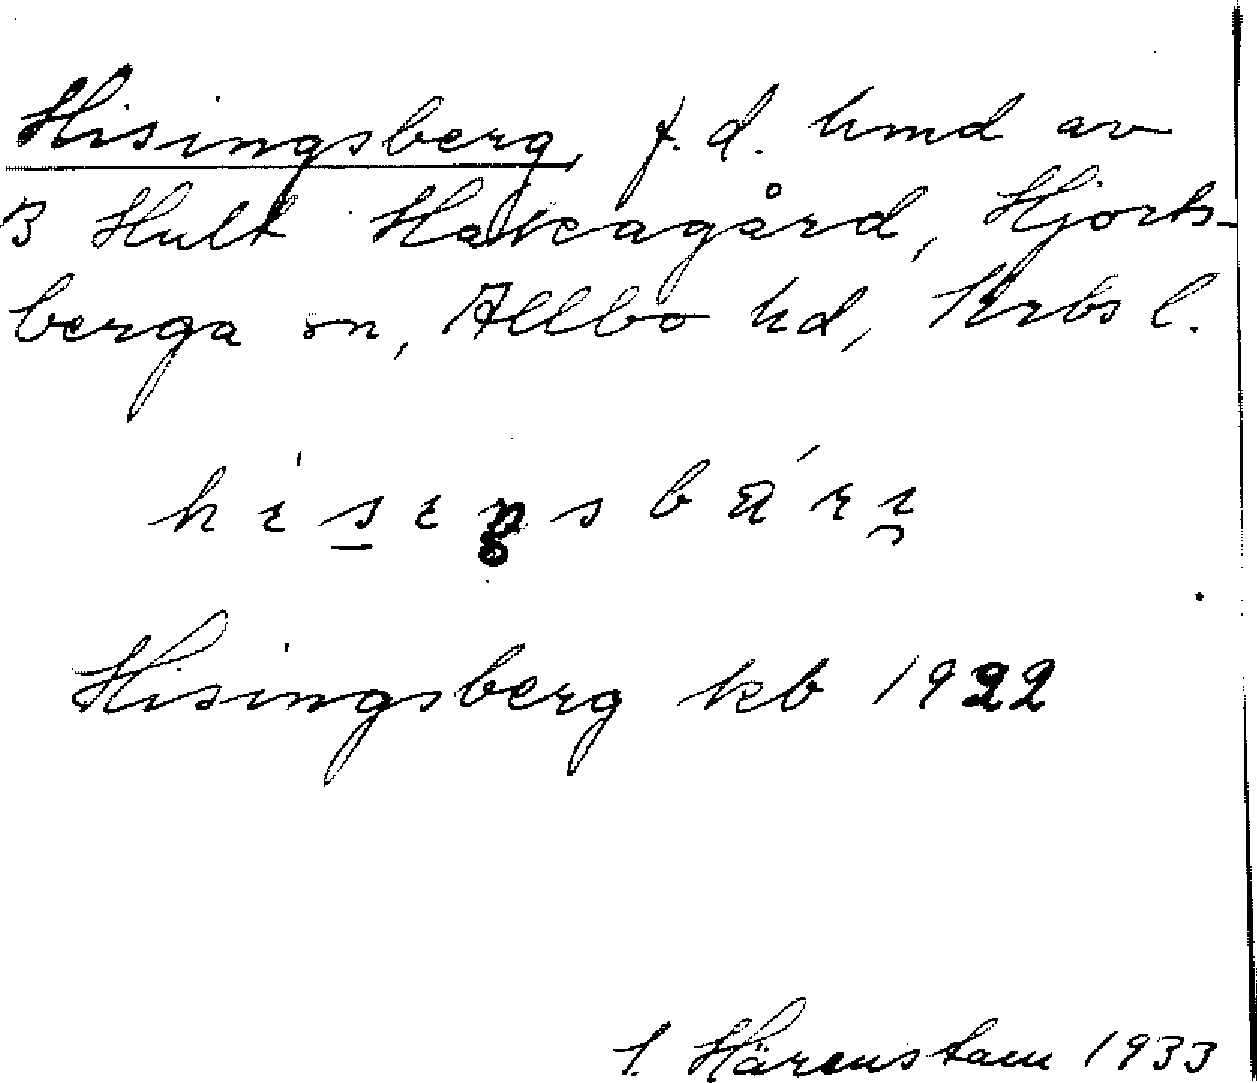 Hisingsberg, f.d. hmd av
B Hult Hakeagård, Hjorts-
berga sn, Allbo hd, Krbs l.
Hisingsberg kb 1922
1. Härenstam 1933